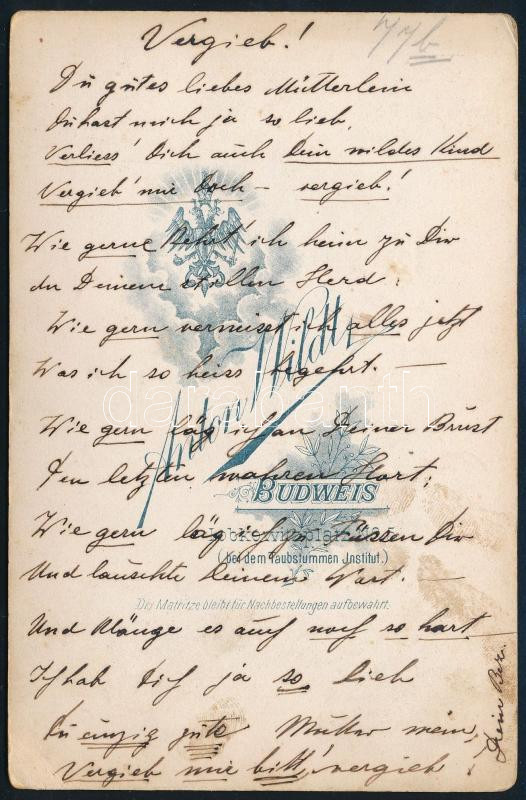 Vergieb!
77b
Du gutes liebes Mütterlein
Du hast mich ja so lieb,
Verliess' Dich auch Dein wildes Kind
Vergieb' mir doch – vergieb!
Wie gerne kehrt' ich heim zu Dir
An Deinen stillen Herd;
Wie gern vermisst ich alles jetzt
Was ich so heiss begehrt. –
Wie gern läg ich an Deiner Brust
Den letzten wahren Hort;
Wie gern läg ich zu Füssen Dir
Und lauschte Deinem Wort. –
Und klänge es auch noch so hart
Ich hab Dich ja so lieb
Du einzig gute Mutter mein,
Vergieb mir bitt', vergieb!
Dein
Anton Wildt
BUDWEIS
(bei dem Taubstummen Institut.)
Die Matritze bleibt für Nachbestellungen aufbewahrt.
darabanth